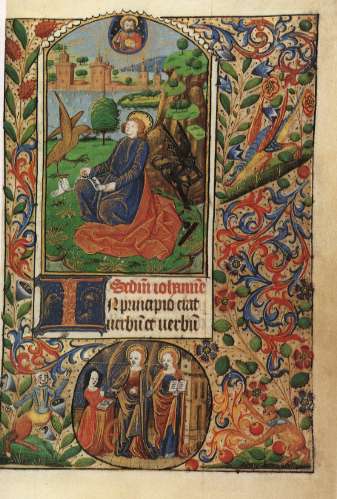 Secdm iohanne
In principio erat
verbu et verbu